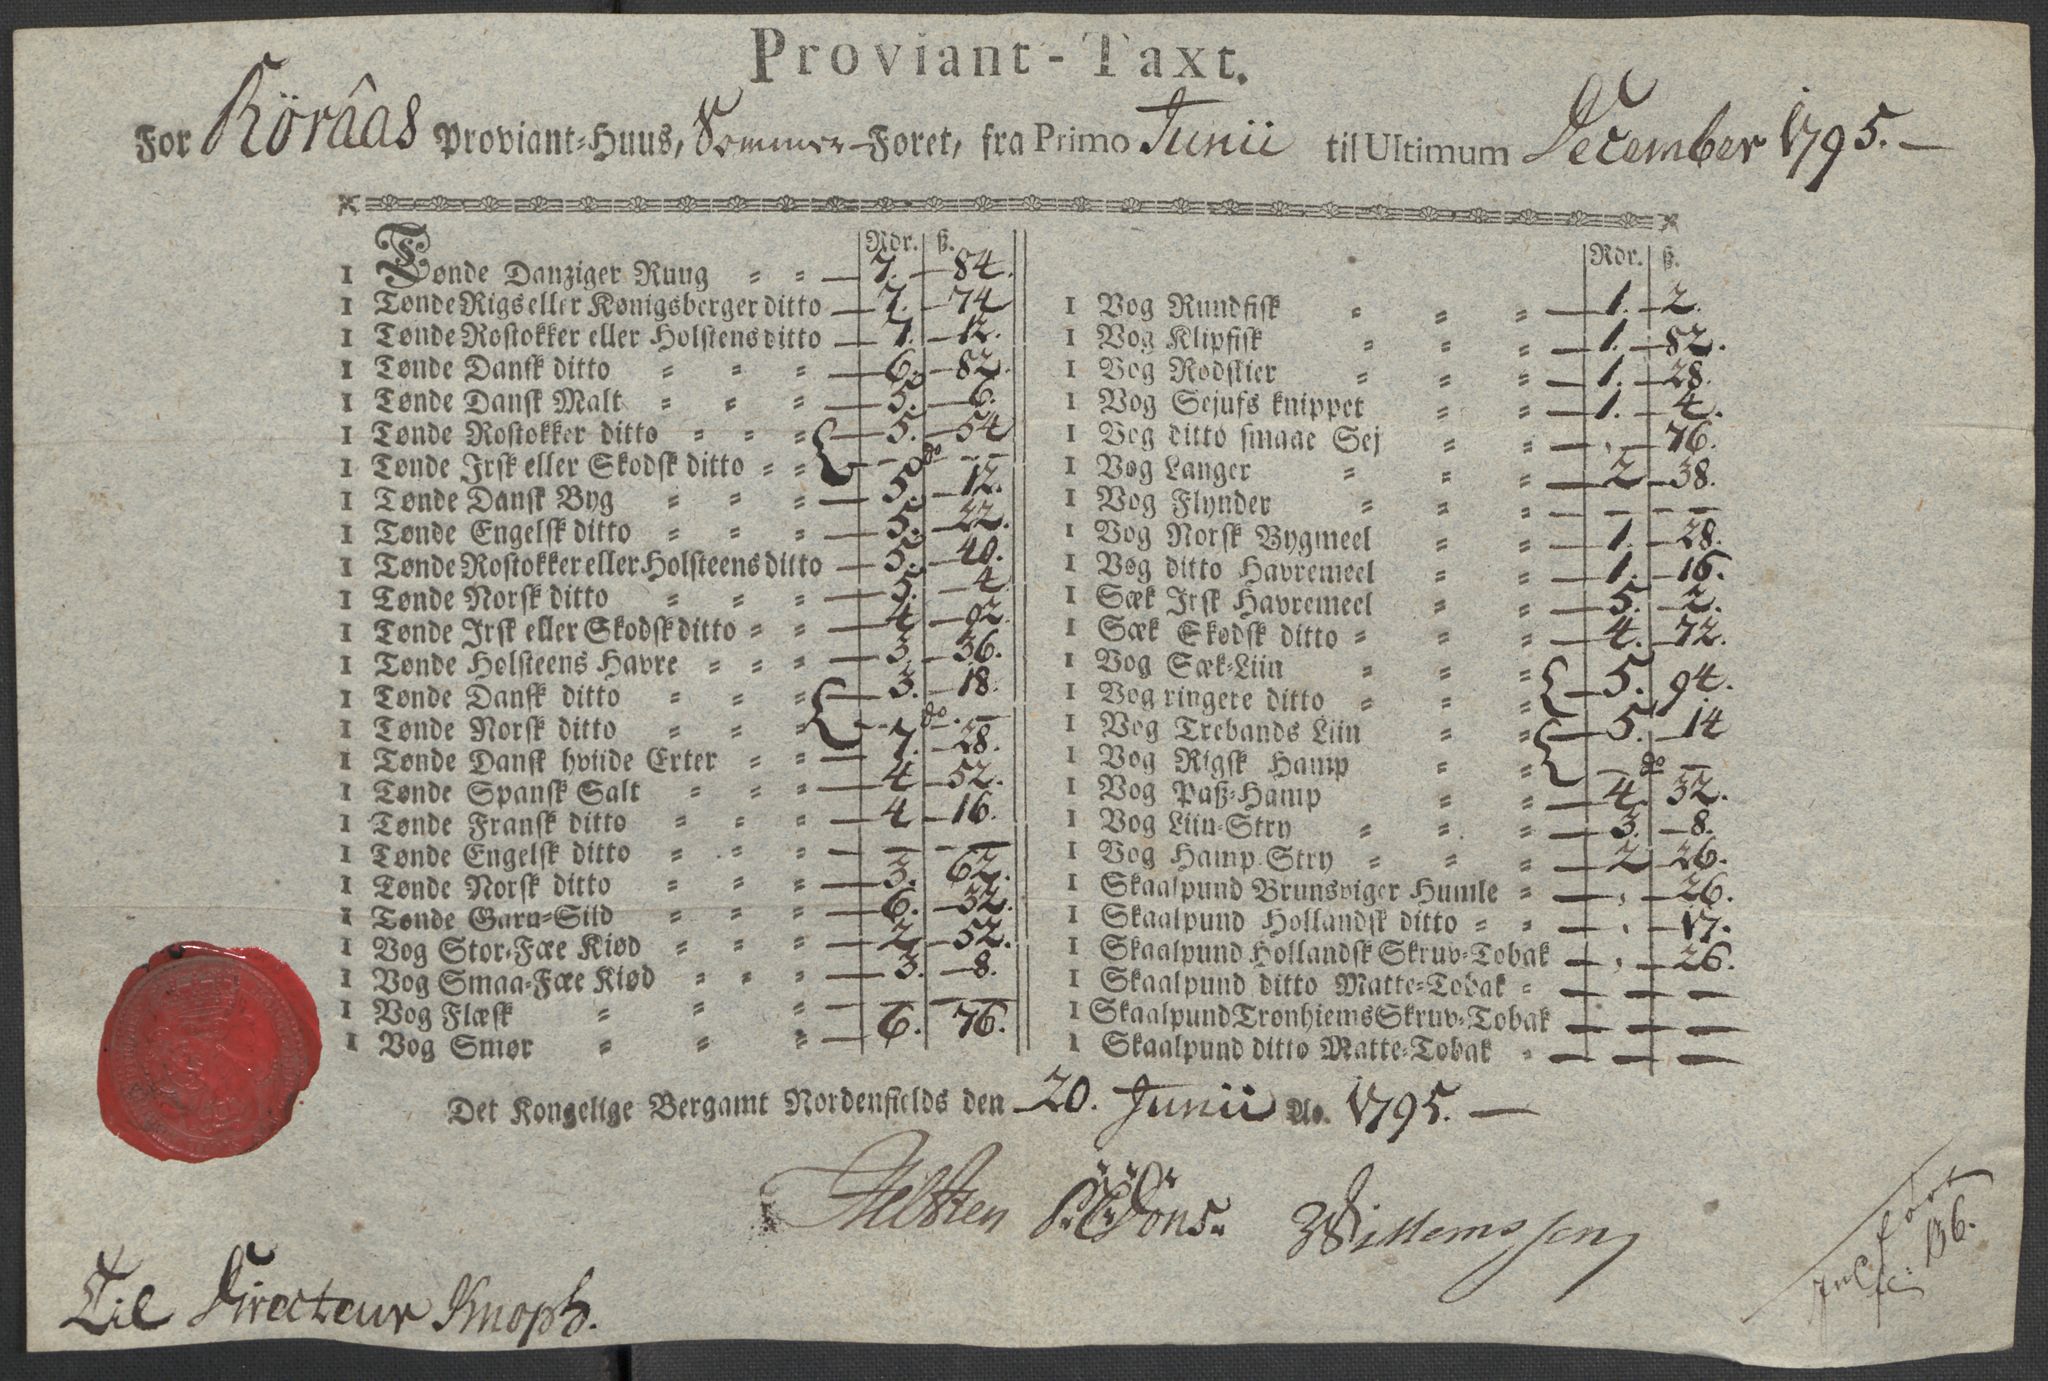 Proviant-Taxt.
For Röraas Proviant-Huus, Sommer-Foret, fra Primo Junii til Ultimum December 1795.
Rdr. ß.
1 Tønde Danziger Ruug 7. 84.
1 Tønde Rigs eller Kønigsberger ditto 7. 74
1 Tønde Rostokker eller Holstens ditto 7. 12.
1 Tønde Dansk ditto 6. 82.
1 Tønde Dansk Malt 5. 6.
1 Tønde Rostokker ditto 5. 54
1 Tønde Irsk eller Skodsk ditto do
1 Tønde Dansk Byg 5. 12.
1 Tønde Engelsk ditto 5. 22.
1 Tønde Rostokker eller Holsteens ditto 5. 40.
1 Tønde Norsk ditto 5. 4
1 Tønde Irsk eller Skodsk ditto 4 92.
1 Tønde Holsteens Havre 3. 36.
1 Tønde Dansk ditto 3. 18.
1 Tønde Norsk ditto do
1 Tønde Dansk hviide Erter 7. 28.
1 Tønde Spansk Salt 4 52.
1 Tønde Fransk ditto 4 16.
1 Tønde Engelsk ditto — —
1 Tønde Norsk ditto 3. 62.
1 Tønde Garn-Sild 6. 32.
1 Vog Stor-Fæe Kiød 2. 52.
1 Vog Smaa-Fæe Kiød 3. 8.
1 Vog Flæsk — —
1 Vog Smør 6. 76.
Rdr. ß.
1 Vog Rundfisk 1. 2.
1 Vog Klipfisk 1. 82.
1 Vog Rodskier 1. 28.
1 Vog Sejufs knippet 1. 4.
1 Vog ditto smaae Sej 76.
1 Vog Langer 2 38.
1 Vog Flynder — —
1 Vog Norsk Bygmeel 1. 28.
1 Vog ditto Havremeel 1. 16.
1 Sæk Irsk Havremeel 5. 2.
1 Sæk Skodsk ditto 4. 72.
1 Vog Sæk-Liin 5. 94.
1 Vog ringere ditto
1 Vog Trebands Liin 5. 14
1 Vog Rigsk Hamp do
1 Vog Paß-Hamp 4. 32.
1 Vog Liin-Stry 3. 8.
1 Vog Hamp-Stry 2 26.
1 Skaalpund Brunsviger Humle 26.
1 Skaalpund Hollandsk ditto 17.
1 Skaalpund Hollandsk Skruv-Tobak 26.
1 Skaalpund ditto Matte-Tobak — — —
1 Skaalpund Trønhiems Skruv-Tobak — — —
1 Skaalpund ditto Matte-Tobak — — —
Det Kongelige Bergamt Nordenfields den 20. Junii Ao. 1795.
Dons. Willemssen
Til Directeur Knoph.
136.